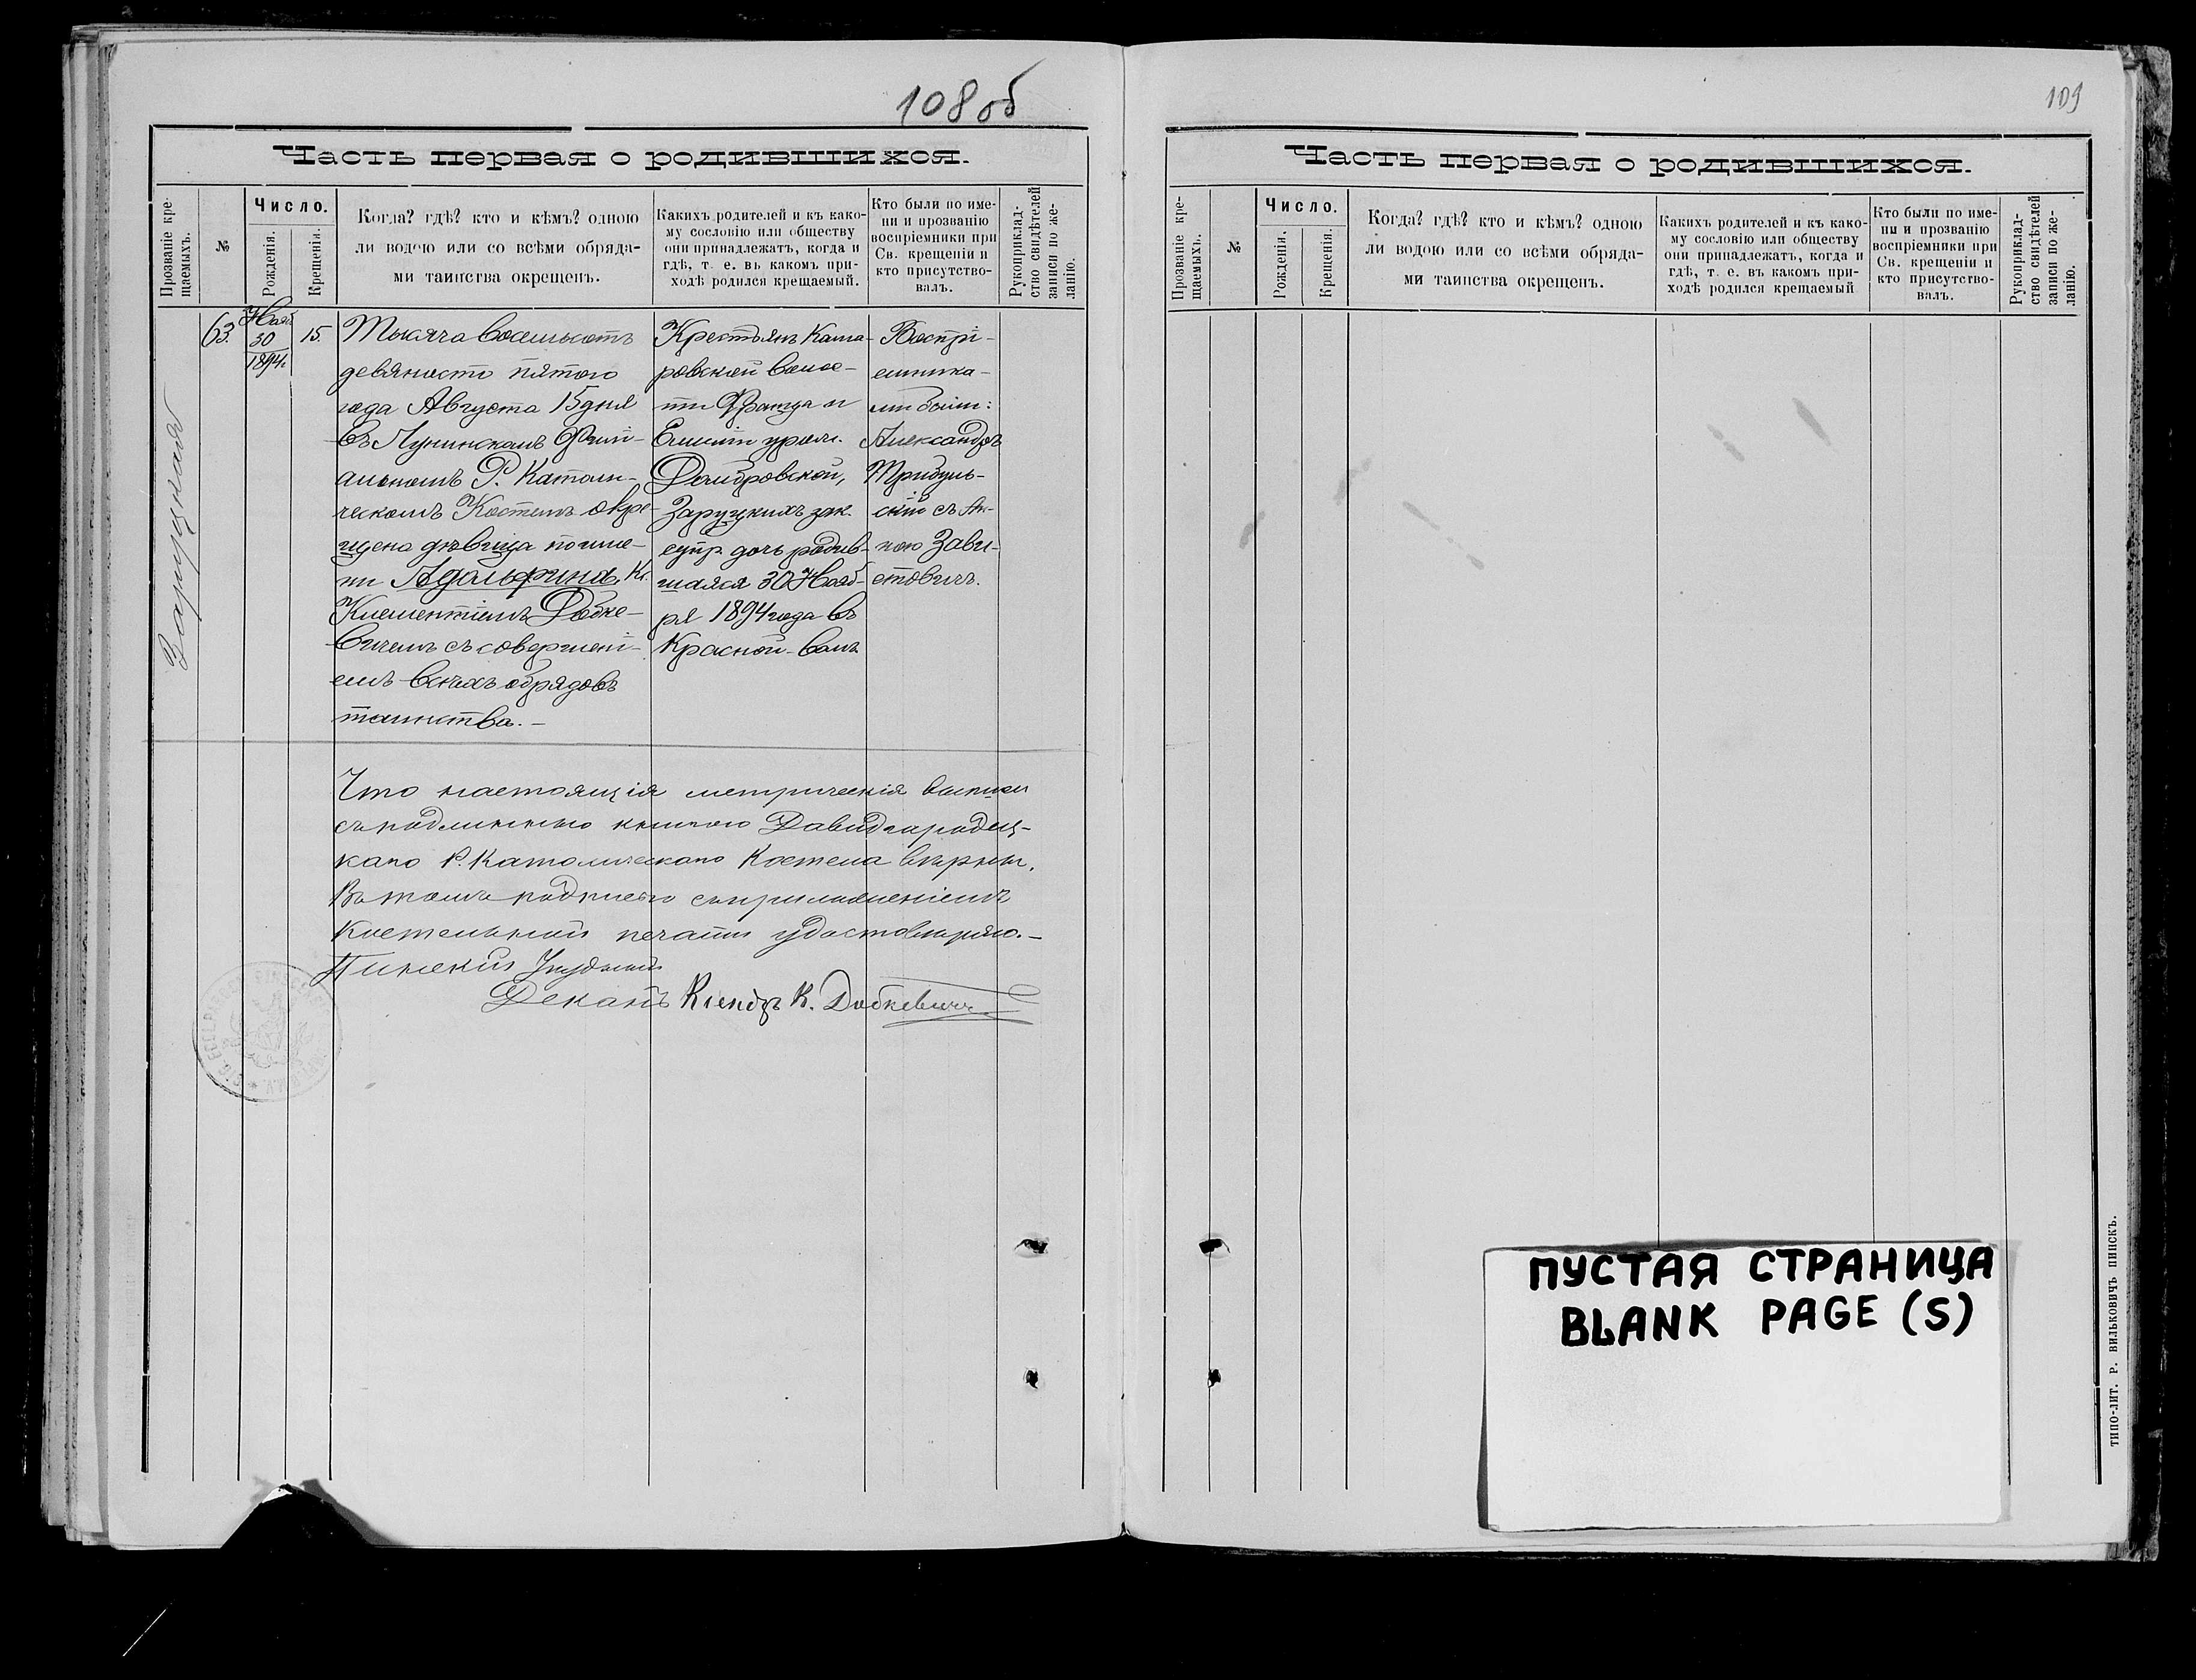 108 об
Часть первая о родившихся.
Прозваніе кре-
щаемыхъ.
№
Число.
Рожденія.
Крещенія.
Когда? гдѣ? кто и кѣмъ? одною
ли водою или со всѣми обряда-
ми таинства окрещенъ.
Какихъ родителей и къ како-
му сословію или обществу
они принадлежатъ, когда и
гдѣ, т. е. въ какомъ при-
ходѣ родился крещаемый.
Кто были по име-
ни и прозванію
воспріемники при
Св. крещеніи и
кто присутство-
валъ.
Рукоприклад-
ство свидѣтелей
записи по же-
ланію.
Заруцкая
63.
Нояб.
30
1894г.
15.
Тысяча восемьсотъ
девяносто пятого
года Августа 15 дня
въ Лунинскомъ Фили-
альномъ Р. Католи-
ческомъ Костелѣ окре-
щена дѣвица по име-
ни Адольфина, Кс.
Климентіемъ Добке-
вичемъ съ совершені-
емъ всѣхъ обрядовъ
таинства. —
Крестьянъ
ровской волос-
ти Франца и
Емиліи урож.
Домбровской,
Заруцкихъ зак.
супр. дочь родив-
шаяся 30 Нояб-
ря 1894 года въ
Красной-волѣ
Воспрі-
емника-
ми были:
Александръ
съ Ан-
ною Зави-
стовичъ.
Что настоящія метрическія выписи
съ подлинною книгою Давидгородец-
каго Р. Католическаго Костела вѣрны,
въ томъ подписью съ приложеніемъ
Костельной печати удостовѣряю. —
Пинскій Уѣздный
Деканъ Ксендзъ К. Добкевичъ
109
Часть первая о родившихся.
Прозваніе кре-
щаемыхъ.
№
Число.
Рожденія.
Крещенія.
Когда? гдѣ? кто и кѣмъ? одною
ли водою или со всѣми обряда-
ми таинства окрещенъ.
Какихъ родителей и къ како-
му сословію или обществу
они принадлежатъ, когда и
гдѣ, т. е. въ какомъ при-
ходѣ родился крещаемый
Кто были по име-
ни и прозванію
воспріемники при
Св. крещеніи и
кто присутство-
валъ.
Рукоприклад-
ство свидѣтелей
записи по же-
ланію.
ПУСТАЯ СТРАНИЦА
BLANK PAGE (S)
ТИПО-ЛИТ. Р. ВИЛЬКОВИЧЪ ПИНСКЪ.